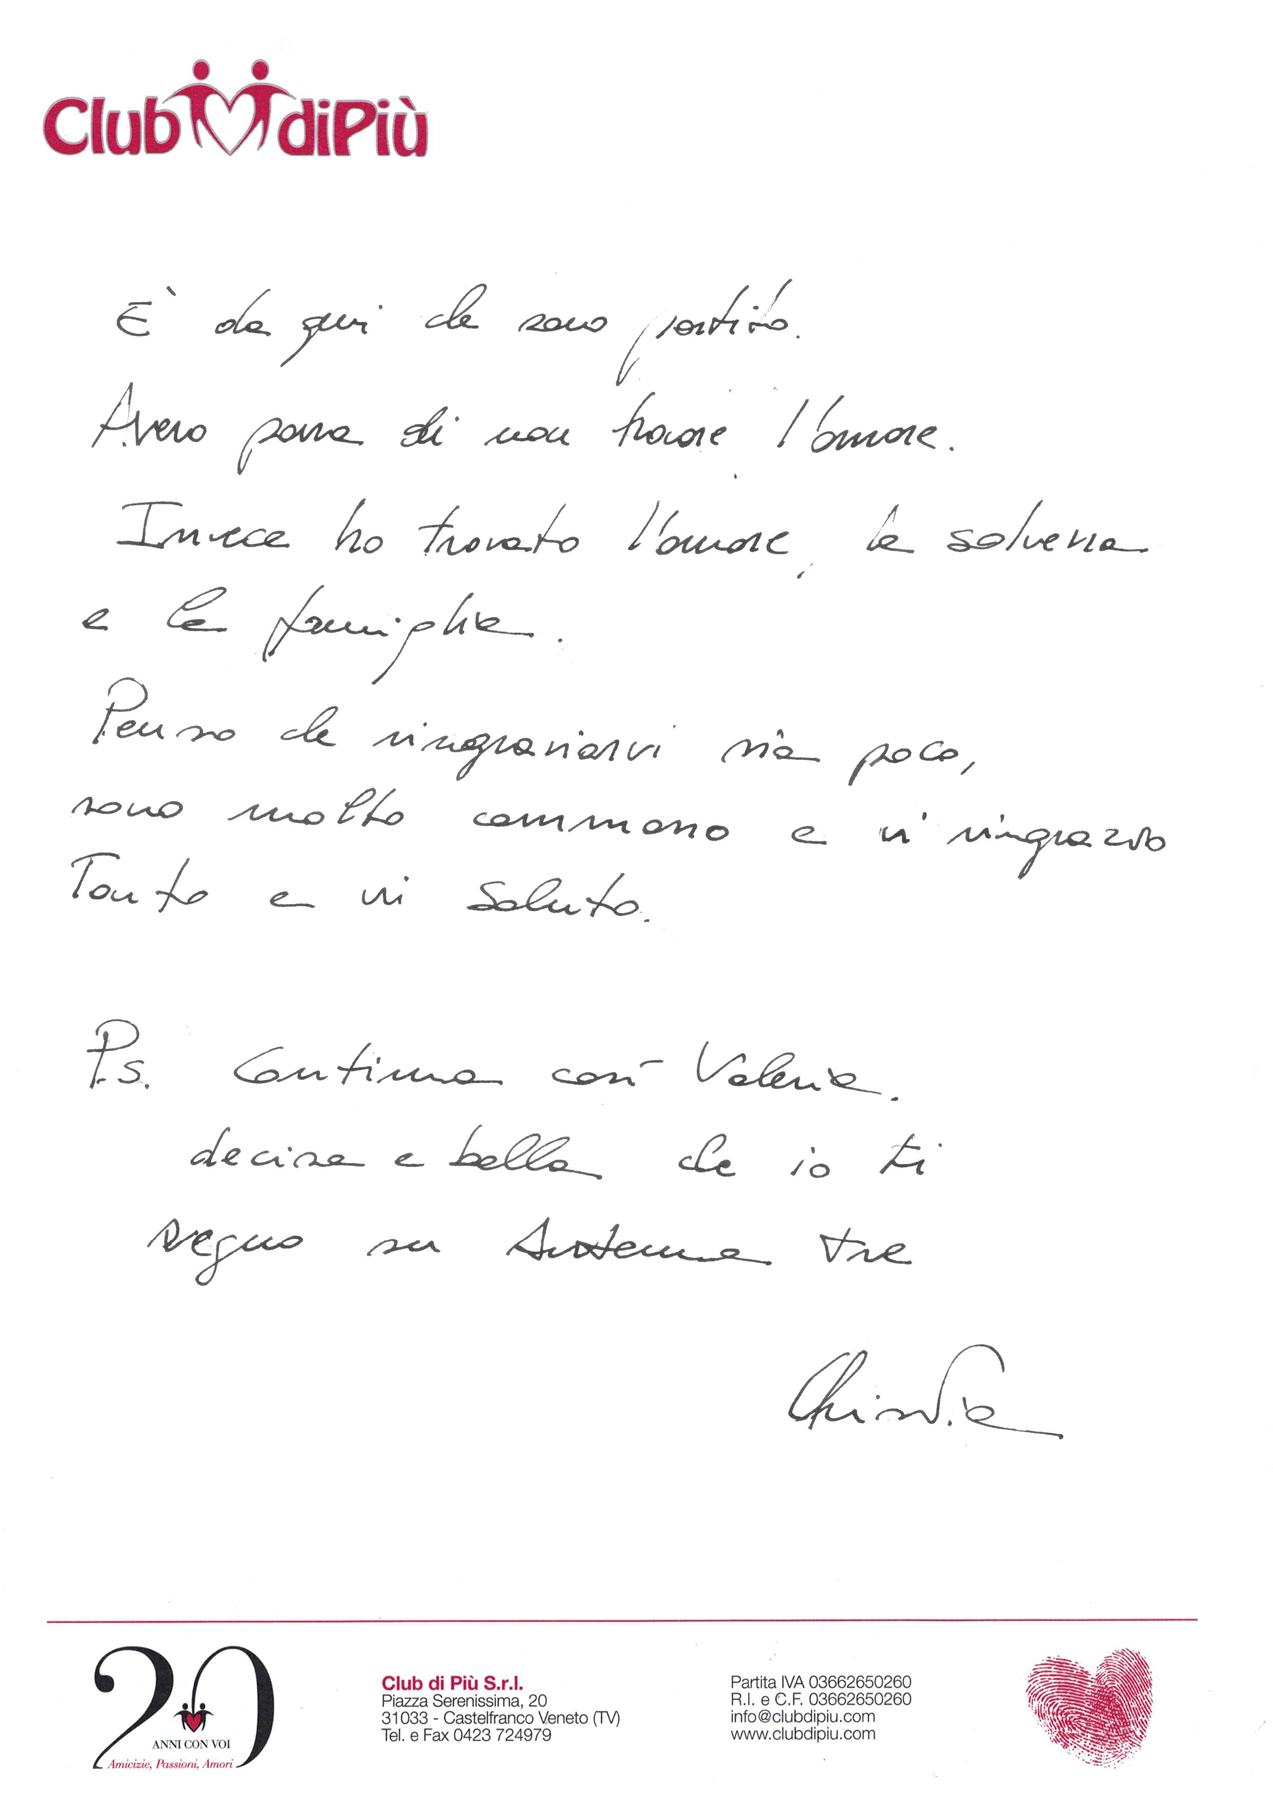 Club diPiù
È da qui che sono partito.
Avevo paura di non trovare l'amore.
Invece ho trovato l'amore, la salvezza
e la famiglia.
Penso che ringraziarvi sia poco,
sono molto commosso e vi ringrazio
Tanto e vi saluto.
P.s. Continua così Valeria.
decisa e bella che io ti
seguo su Antenna tre
20
ANNI CON VOI
Amicizie, Passioni, Amori
Club di Più S.r.l.
Piazza Serenissima, 20
31033 - Castelfranco Veneto (TV)
Tel. e Fax 0423 724979
Partita IVA 03662650260
R.I. e C.F. 03662650260
info@clubdipiu.com
www.clubdipiu.com